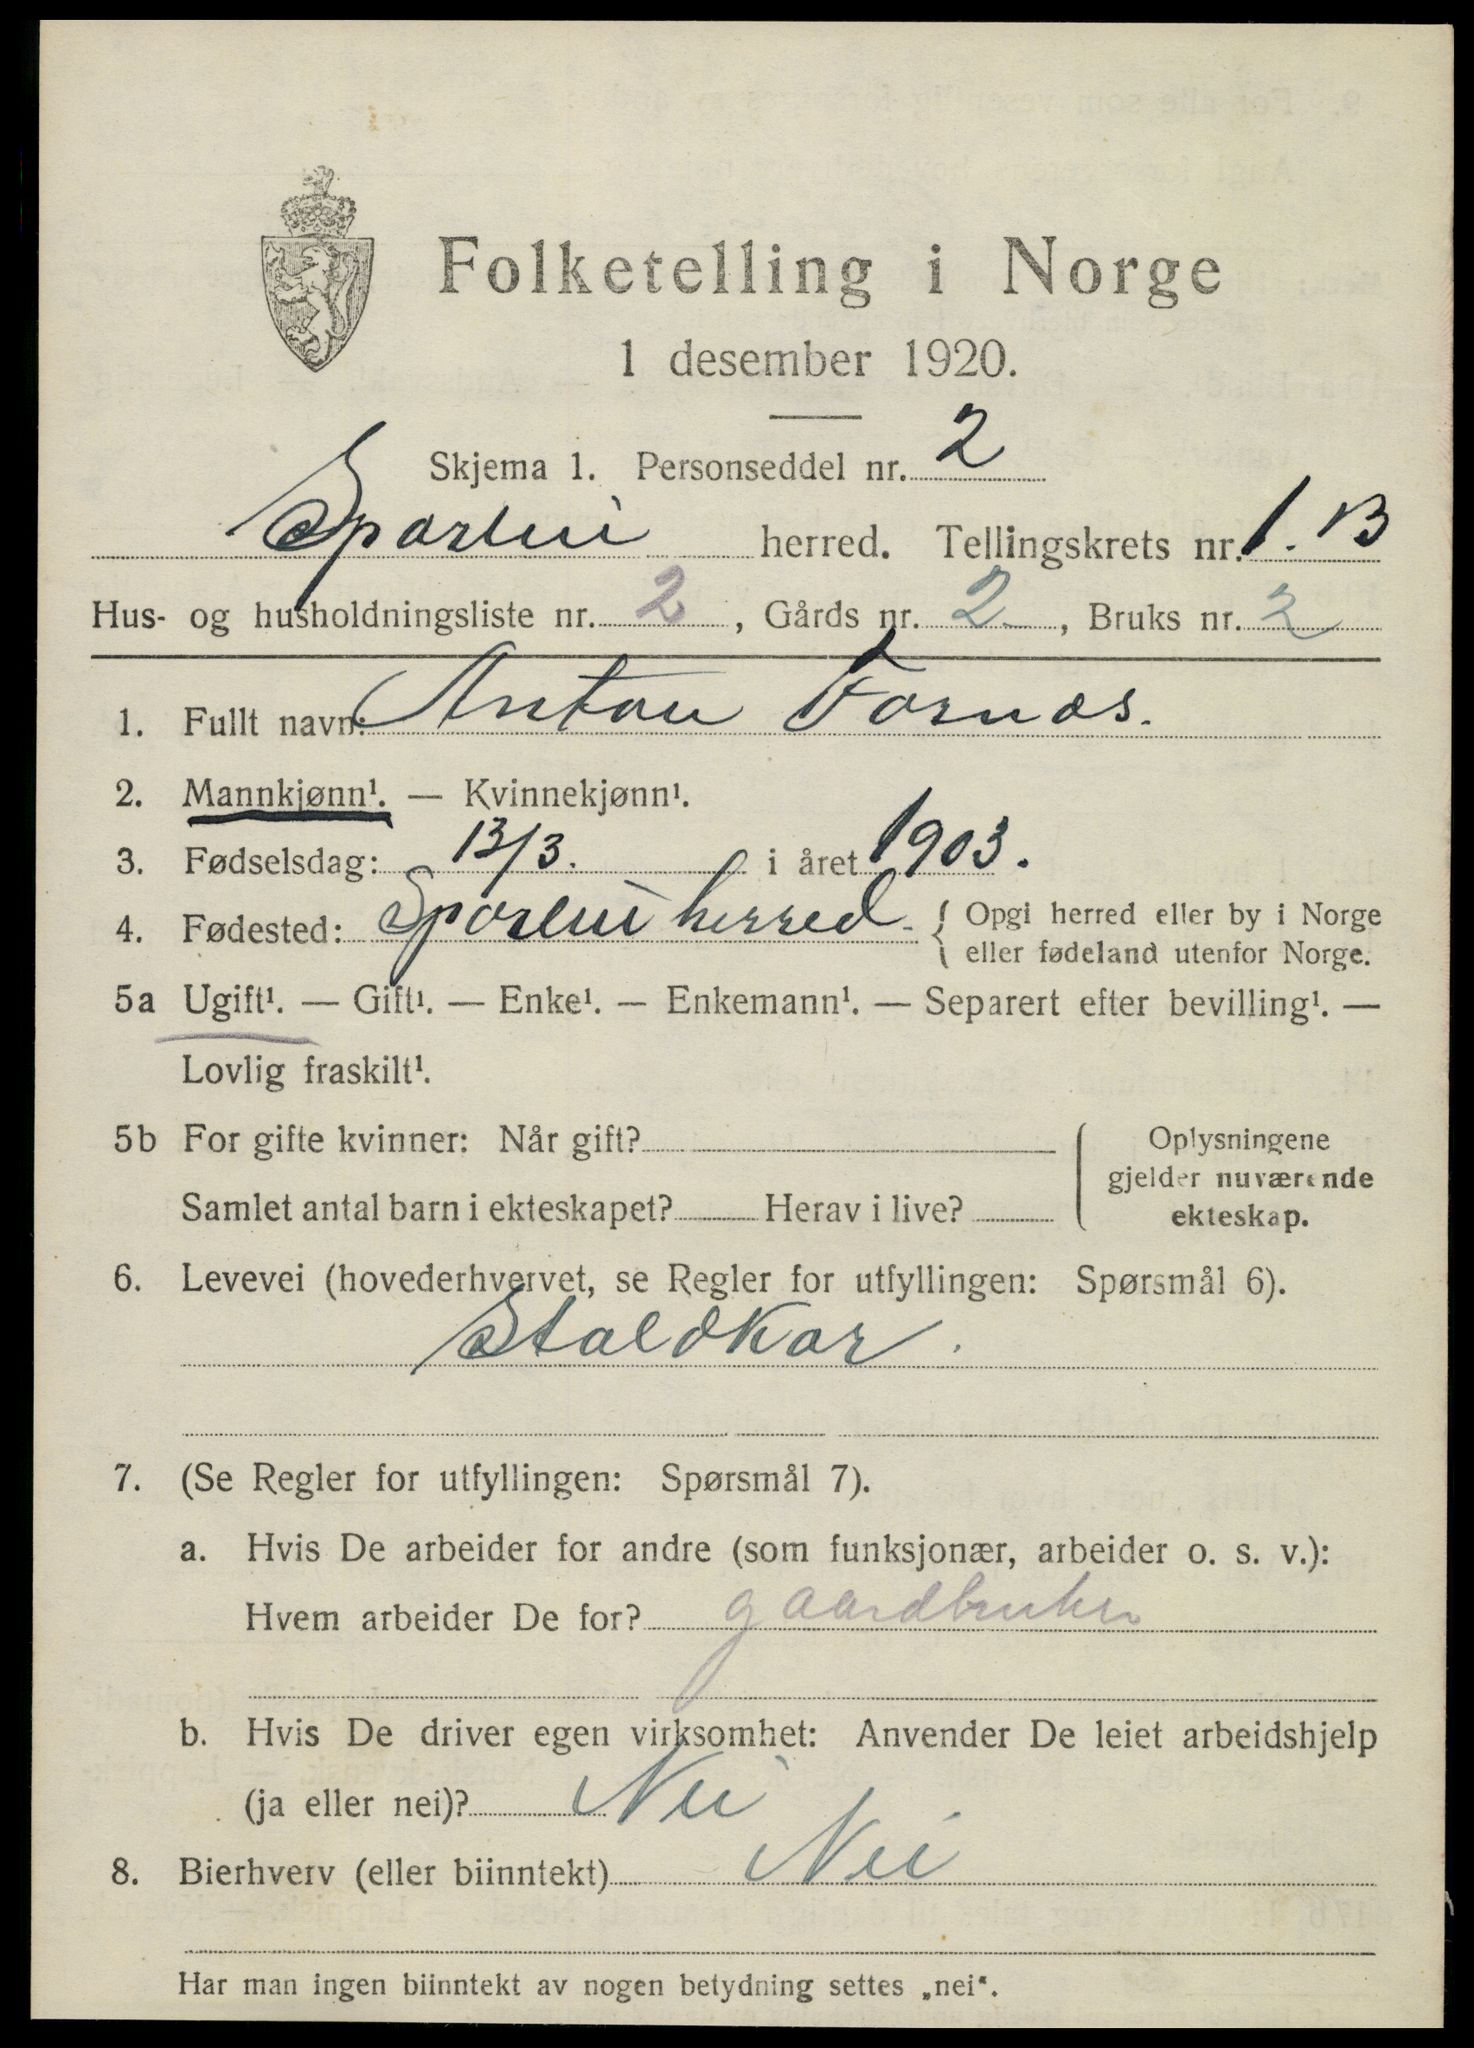 Folketelling i Norge
1 desember 1920.
Skjema 1. Personseddel nr. 2
Sparbu herred. Tellingskrets nr. 1. B
Hus- og husholdningsliste nr. 2, Gårds nr. 2, Bruks nr. 2
1. Fullt navn: Anton Fornes.
2. Mannkjønn¹. — Kvinnekjønn¹.
3. Fødselsdag: 13/3. i året 1903.
4. Fødested: Sparbu herred. { Opgi herred eller by i Norge
eller fødeland utenfor Norge.
5a Ugift¹. — Gift¹. — Enke¹. — Enkemann¹. — Separert efter bevilling¹. —
Lovlig fraskilt¹.
5b For gifte kvinner: Når gift?
Samlet antal barn i ekteskapet? Herav i live?
Oplysningene
gjelder nuværende
ekteskap.
6. Levevei (hovederhvervet, se Regler for utfyllingen: Spørsmål 6).
Staldkar.
7. (Se Regler for utfyllingen: Spørsmål 7).
a. Hvis De arbeider for andre (som funksjonær, arbeider o. s. v.):
Hvem arbeider De for? gaardbruker
b. Hvis De driver egen virksomhet: Anvender De leiet arbeidshjelp
(ja eller nei)? Nei
8. Bierhverv (eller biinntekt) Nei
Har man ingen biinntekt av nogen betydning settes „nei“.